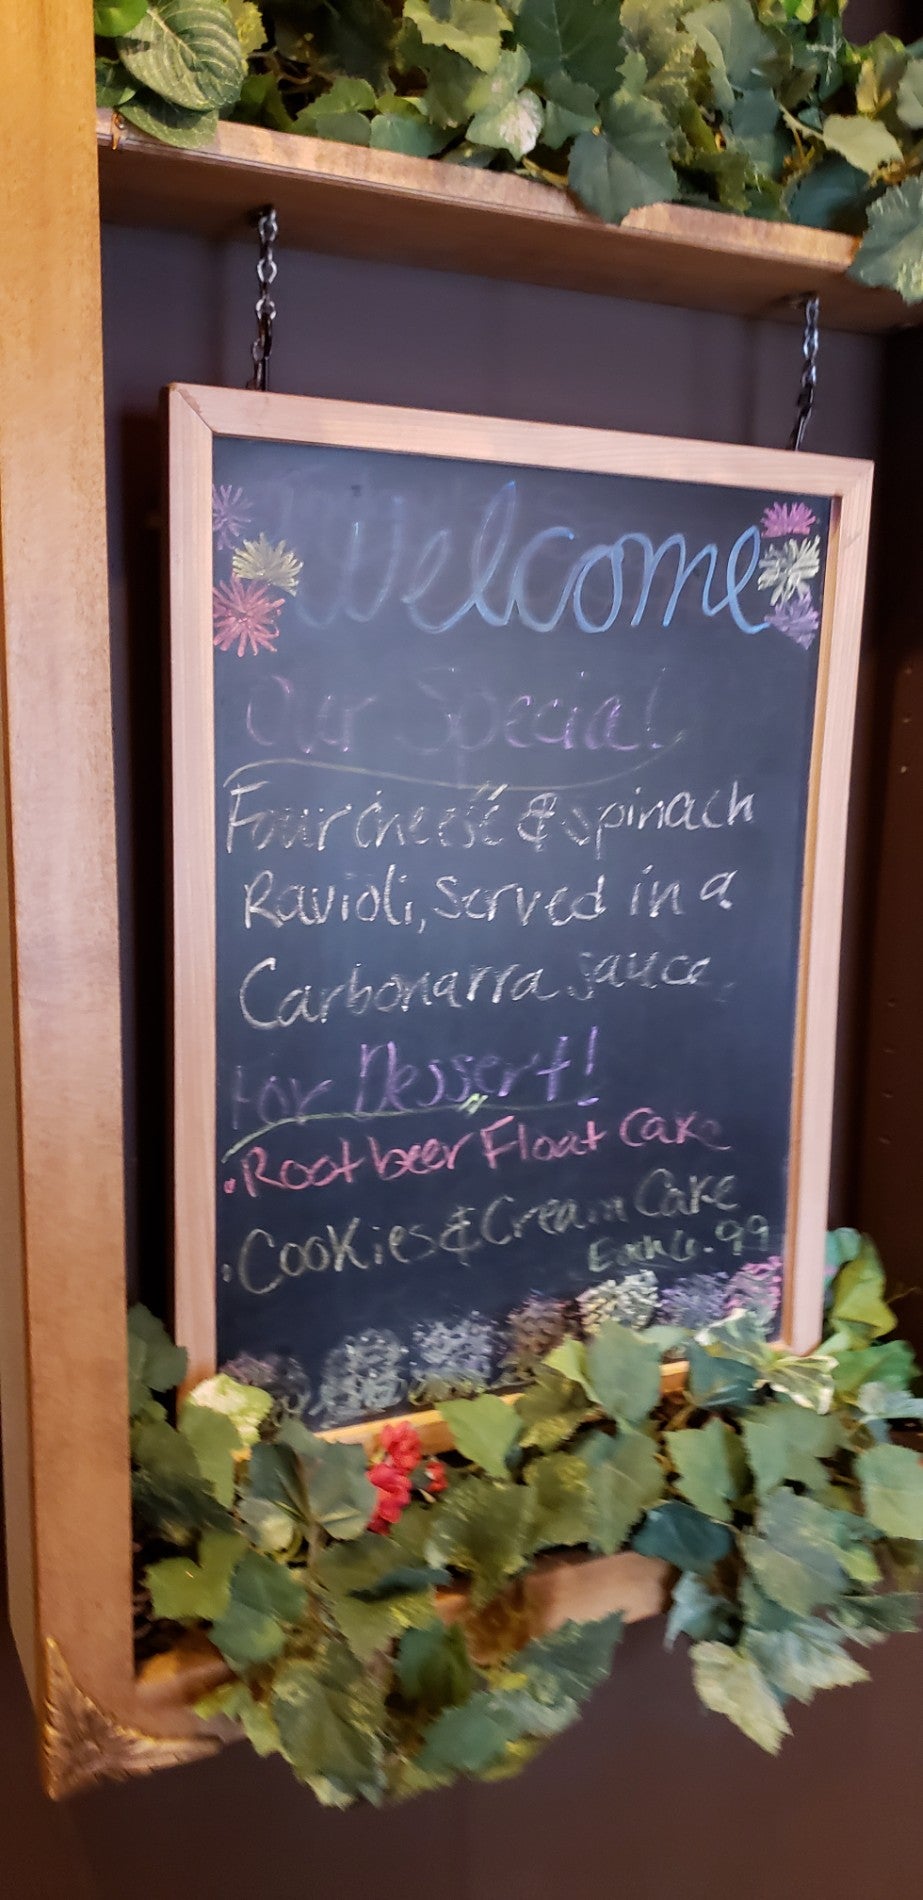 Welcome
Our Special!
Four cheese & Spinach
Ravioli, Served in a
Carbonarra Sauce.
For Dessert!
. Rootbeer Float Cake
. Cookies & Cream Cake
Each 6.99